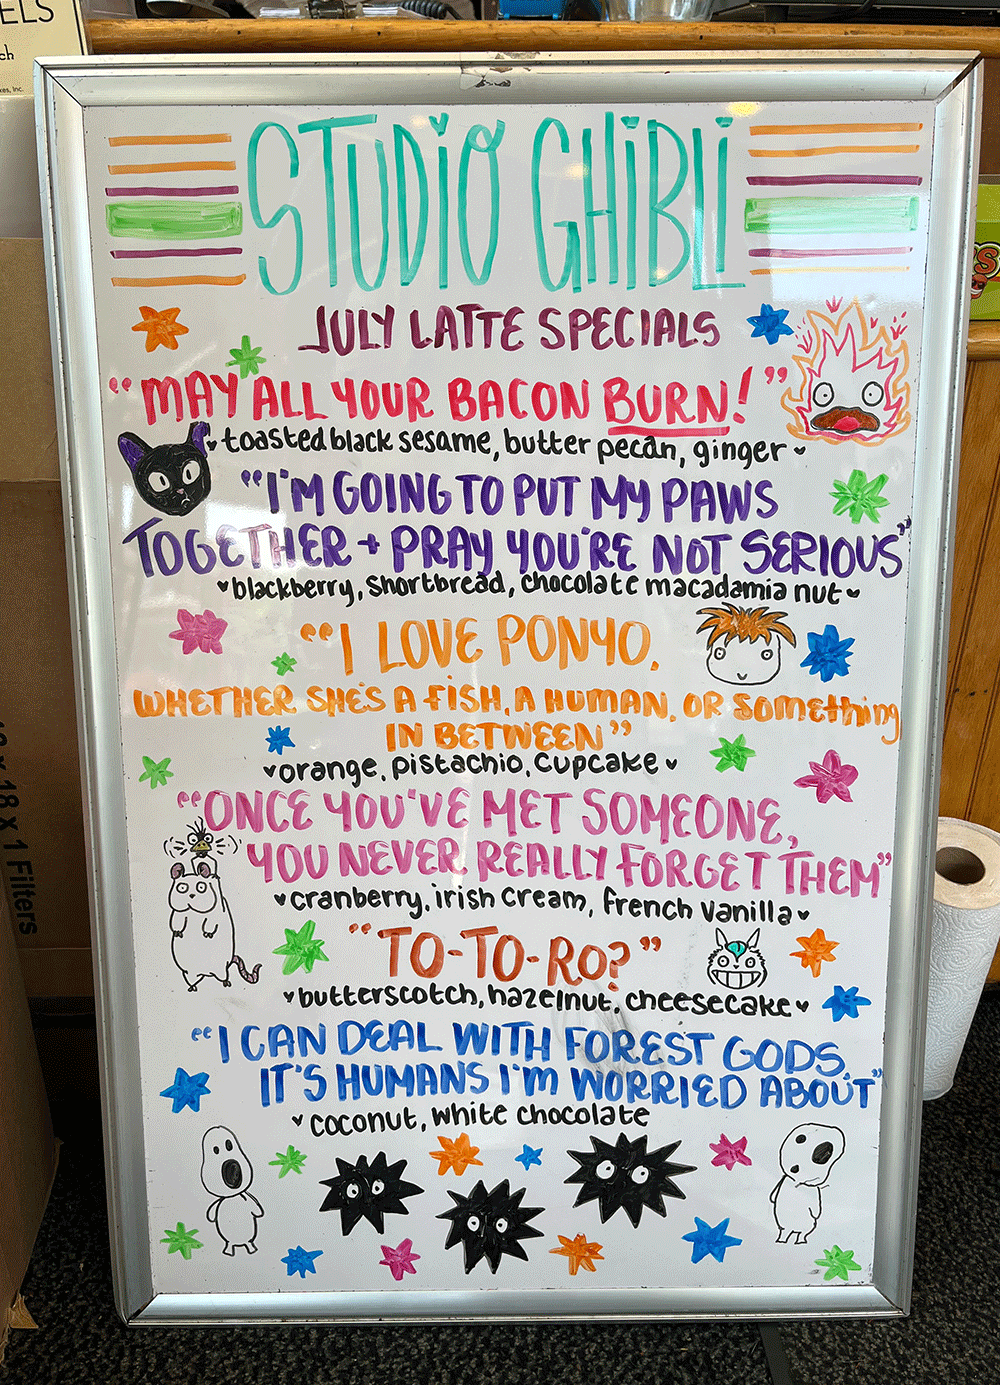 ELS
ch
xes, Inc.
STUDIO GHIBLI
JULY LATTE SPECIALS
"MAY ALL YOUR BACON BURN!"
♥ toasted black sesame, butter pecan, ginger ♥
"I'M GOING TO PUT MY PAWS
TOGETHER + PRAY YOU'RE NOT SERIOUS"
♥ blackberry, shortbread, chocolate macadamia nut ♥
"I LOVE PONYO.
WHETHER SHE'S A FISH, A HUMAN, OR SOMETHING
IN BETWEEN"
♥ orange, pistachio, cupcake ♥
"ONCE YOU'VE MET SOMEONE,
YOU NEVER REALLY FORGET THEM"
♥ cranberry, irish cream, french vanilla ♥
"TO-TO-RO?"
♥ butterscotch, hazelnut, cheesecake ♥
"I CAN DEAL WITH FOREST GODS,
IT'S HUMANS I'M WORRIED ABOUT"
♥ coconut, white chocolate
x 18 x 1 Filters